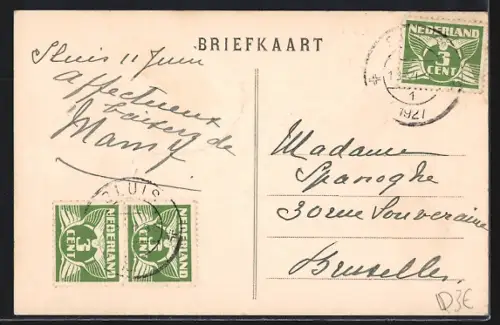 BRIEFKAART
Sluis 11 Juin
affectueux
baisers de
Mamy
NEDERLAND
3
CENT
1
1741
Madame
Spanoghe
30 rue Souveraine
Bruxelles
SLUIS
NEDERLAND
3
CENT
NEDERLAND
3
CENT
3€